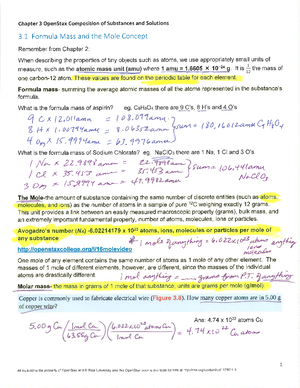 Chapter 3 OpenStax Composition of Substances and Solutions
3.1 Formula Mass and the Mole Concept
Remember from Chapter 2:
When describing the properties of tiny objects such as atoms, we use appropriately small units of
measure, such as the atomic mass unit (amu) where 1 amu = 1.6605 X 10⁻²⁴ g. It is 1/12 the mass of
one carbon-12 atom. These values are found on the periodic table for each element.
Formula mass- summing the average atomic masses of all the atoms represented in the substance's
formula.
What is the formula mass of aspirin? eg. C₉H₈O₄ there are 9 C's, 8 H's and 4 O's
9 C x 12.011amu = 108.099amu
8 H x 1.00794amu = 8.06352amu } sum = 180.16012amu C₉H₈O₄
4 O x 15.9994amu = 63.9976amu
What is the formula mass of Sodium Chlorate? eg. NaClO₃ there are 1 Na, 1 Cl and 3 O's
1 Na x 22.9898amu = 22.9898amu
1 Cl x 35.453amu = 35.453amu } sum = 106.441amu
3 O x 15.9994amu = 47.9982amu NaClO₃
The Mole-the amount of substance containing the same number of discrete entities (such as atoms,
molecules, and ions) as the number of atoms in a sample of pure ¹²C weighing exactly 12 grams.
This unit provides a link between an easily measured macroscopic property (grams), bulk mass, and
an extremely important fundamental property, number of atoms, molecules, ions or particles.
Avogadro's number (Nₐ) -6.02214179 x 10²³ atoms, ions, molecules or particles per mole of
any substance
1 mole of anything = 6.022x10²³ atoms
http://openstaxcollege.org/l/16molevideo
One mole of any element contains the same number of atoms as 1 mole of any other element. The
masses of 1 mole of different elements, however, are different, since the masses of the individual
atoms are drastically different.
1 mol anything = grams from P.T. anything
Molar mass- the mass in grams of 1 mole of that substance, units are grams per mole (g/mol)
Copper is commonly used to fabricate electrical wire (Figure 3.8). How many copper atoms are in 5.00 g
of copper wire?
Ans: 4.74 x 10²² atoms Cu
5.00 g Cu (1 mol Cu / 63.55g Cu) (6.022x10²³ atoms Cu / 1 mol Cu) = 4.74 x 10²² Cu atoms
1